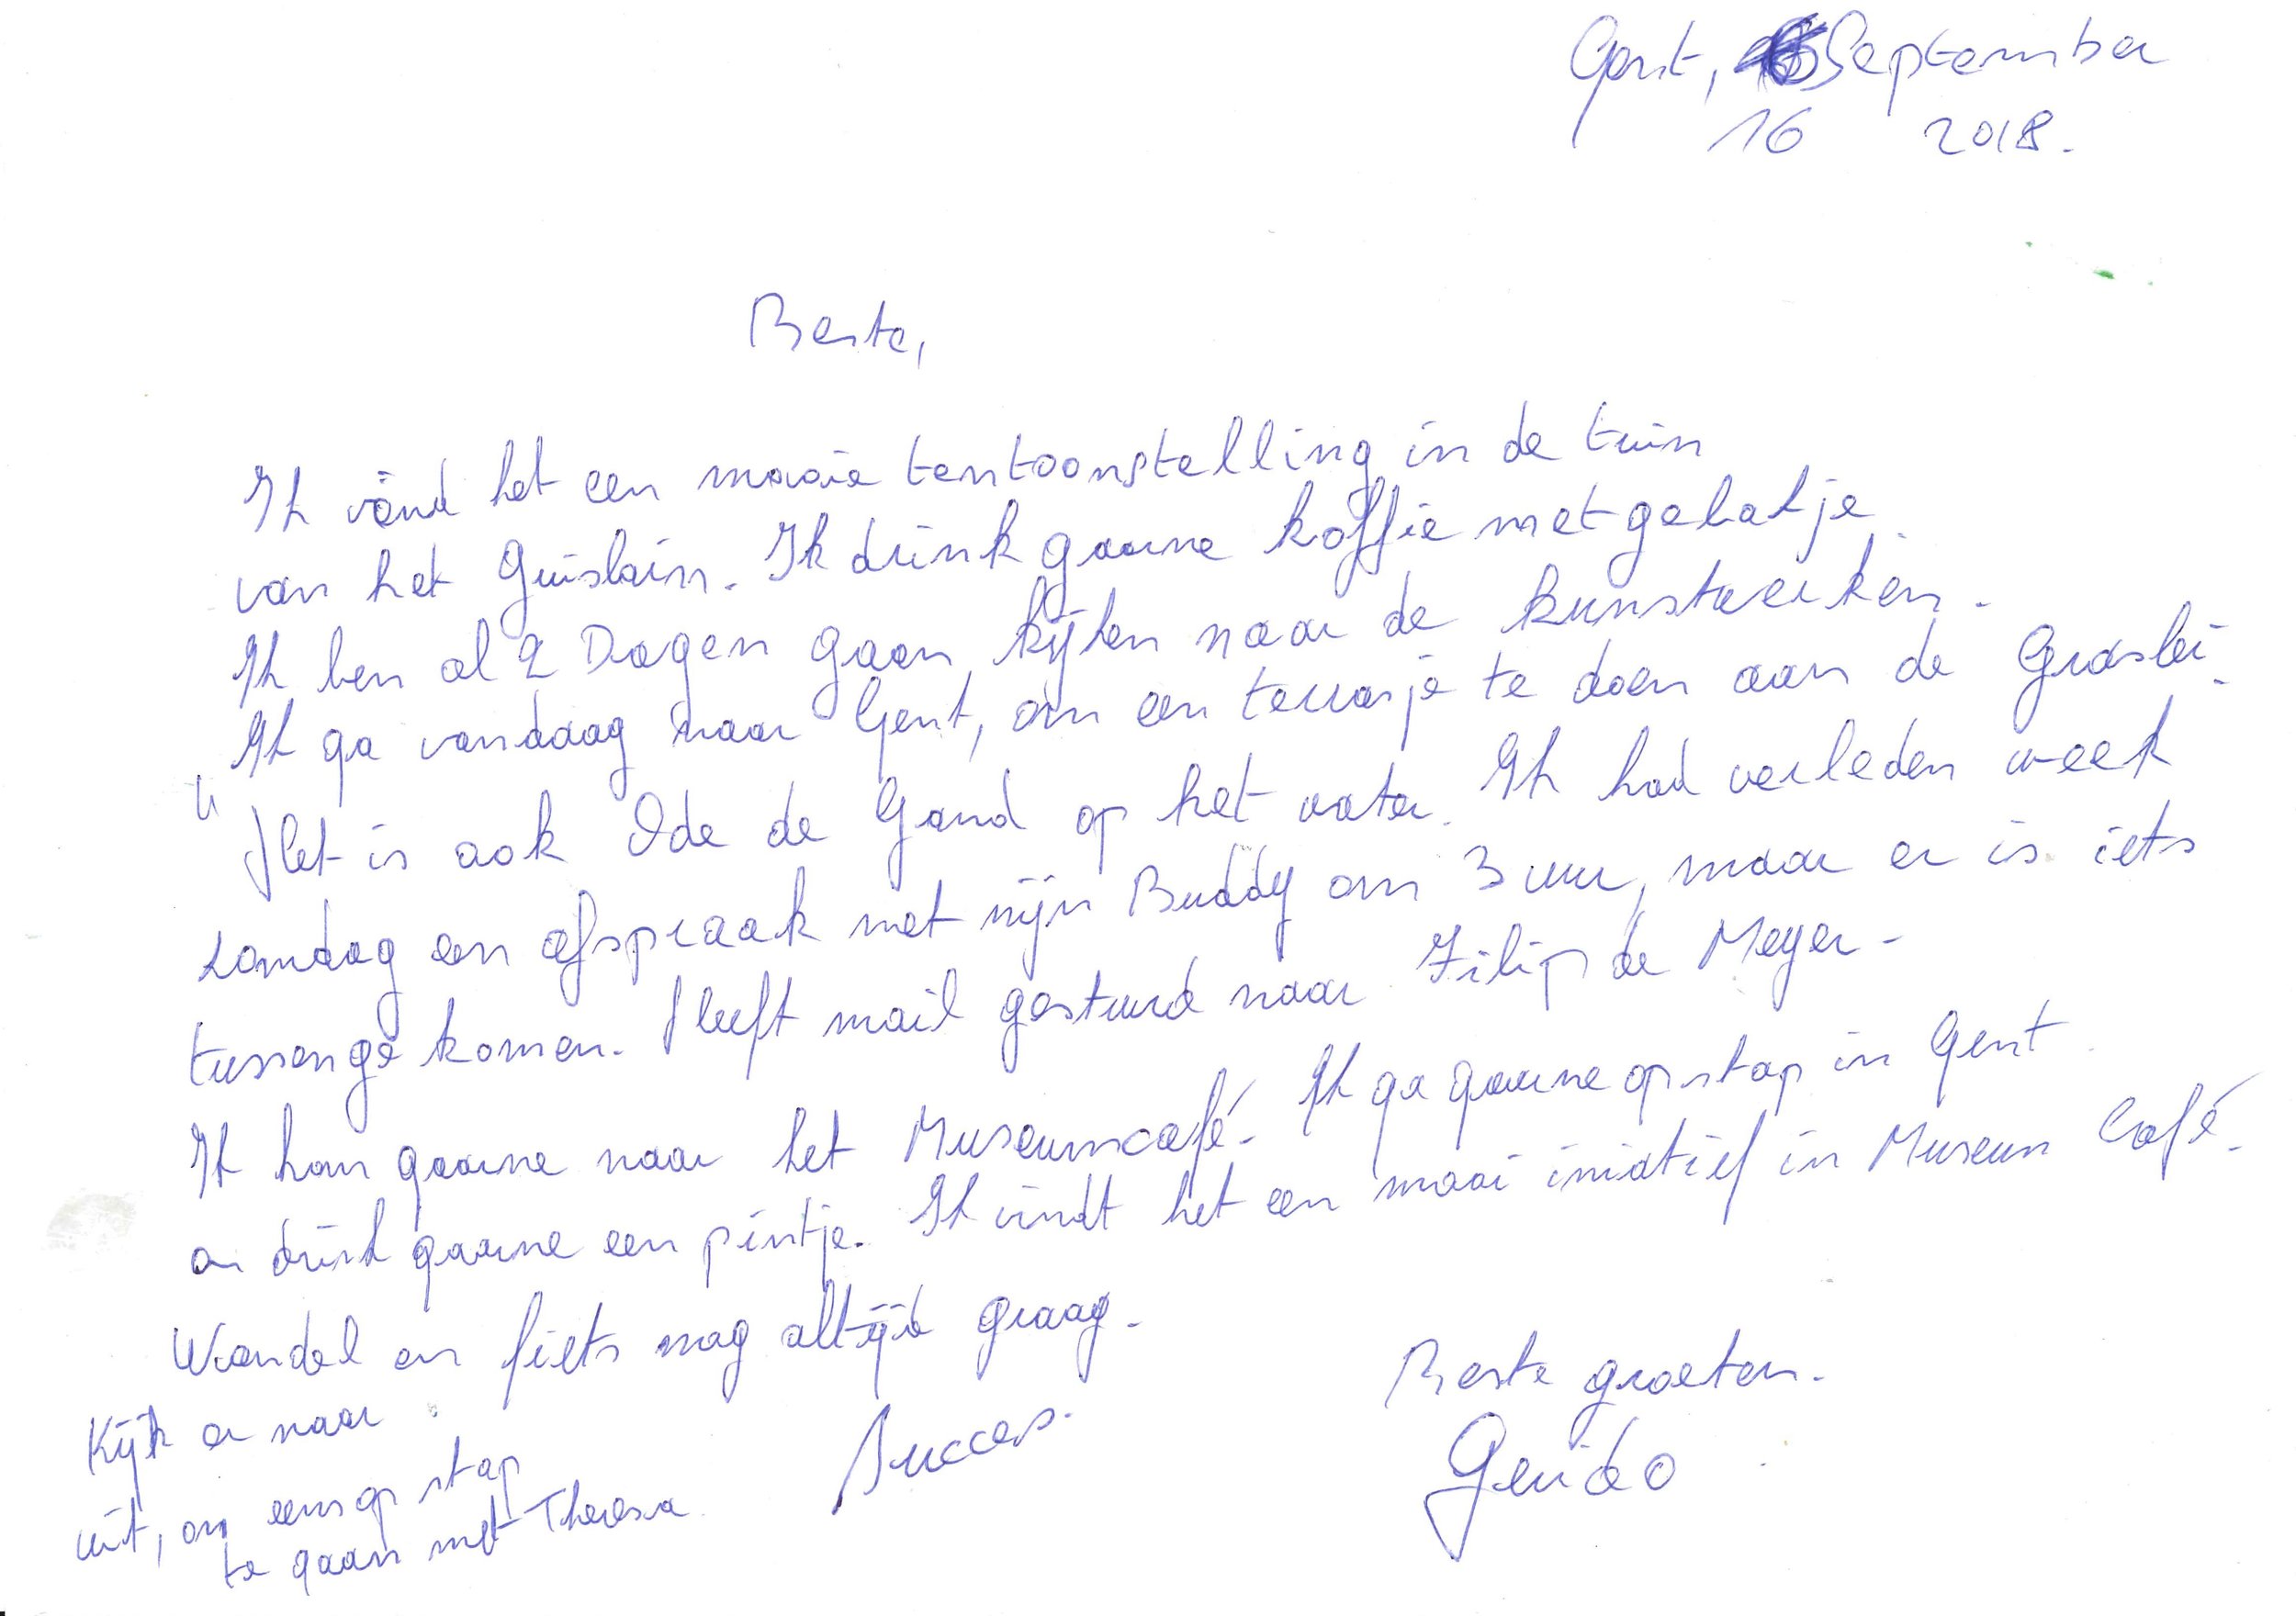 Gent, September
16 2018.
Beste,
Ik vind het een mooie tentoonstelling in de tuin
van het Guislain. Ik drink gaarne koffie met gebakje.
Ik ben al 2 Dagen gaan kijken naar de kunstwerken.
Ik ga vandaag naar Gent, om een terrasje te doen aan de Graslei.
Het is ook Ode de Gand op het water. Ik had verleden week
zondag een afspraak met mijn Buddy om 3 uur, maar er is iets
tussengekomen. Heeft mail gestuurd naar Filip de Meyer.
Ik kom gaarne naar het Museumcafé. Ik ga gaarne op stap in Gent
en drink gaarne een pintje. Ik vindt het een mooi iniatief in Museum Café.
Wandel en fiets nog altijd graag.
Kijk er naar
uit, om eens op stap
te gaan met Theresa
Succes.
Beste groeten.
Guido